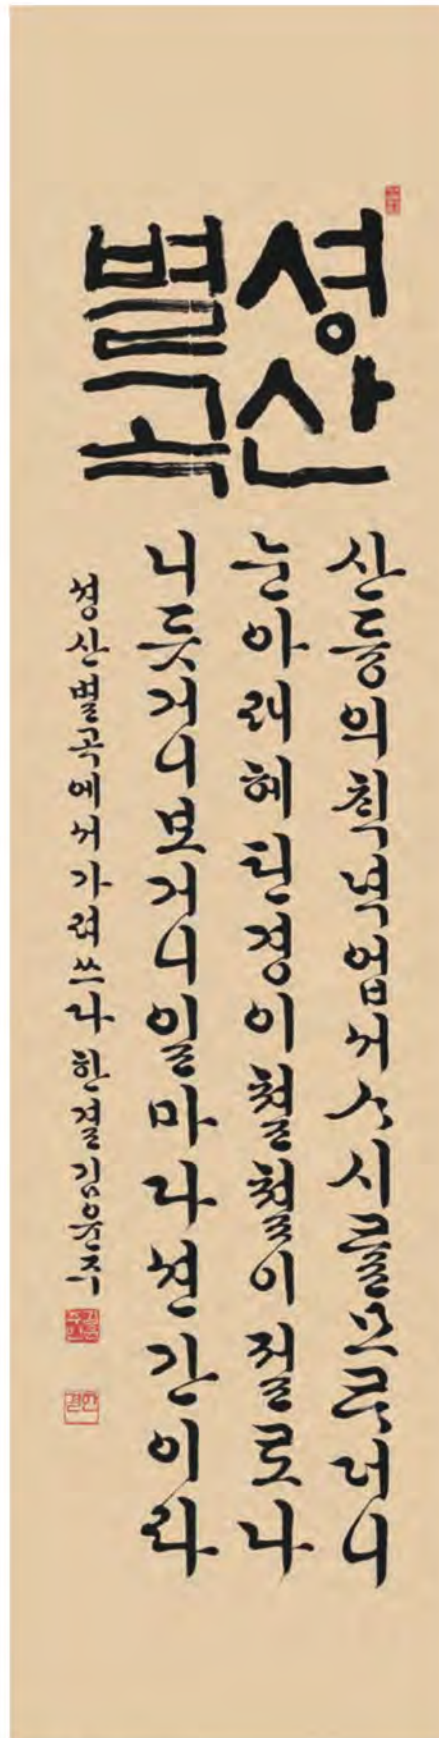 셩산
별곡
산듕의칙녁업서ᄉᆞ시를모ᄅᆞ더니
눈아래헤틴경이쳘쳘이절로나
니듯거니보거니일마다션간이라
셩산별곡에서가려쓰다 한결김윤주
한결